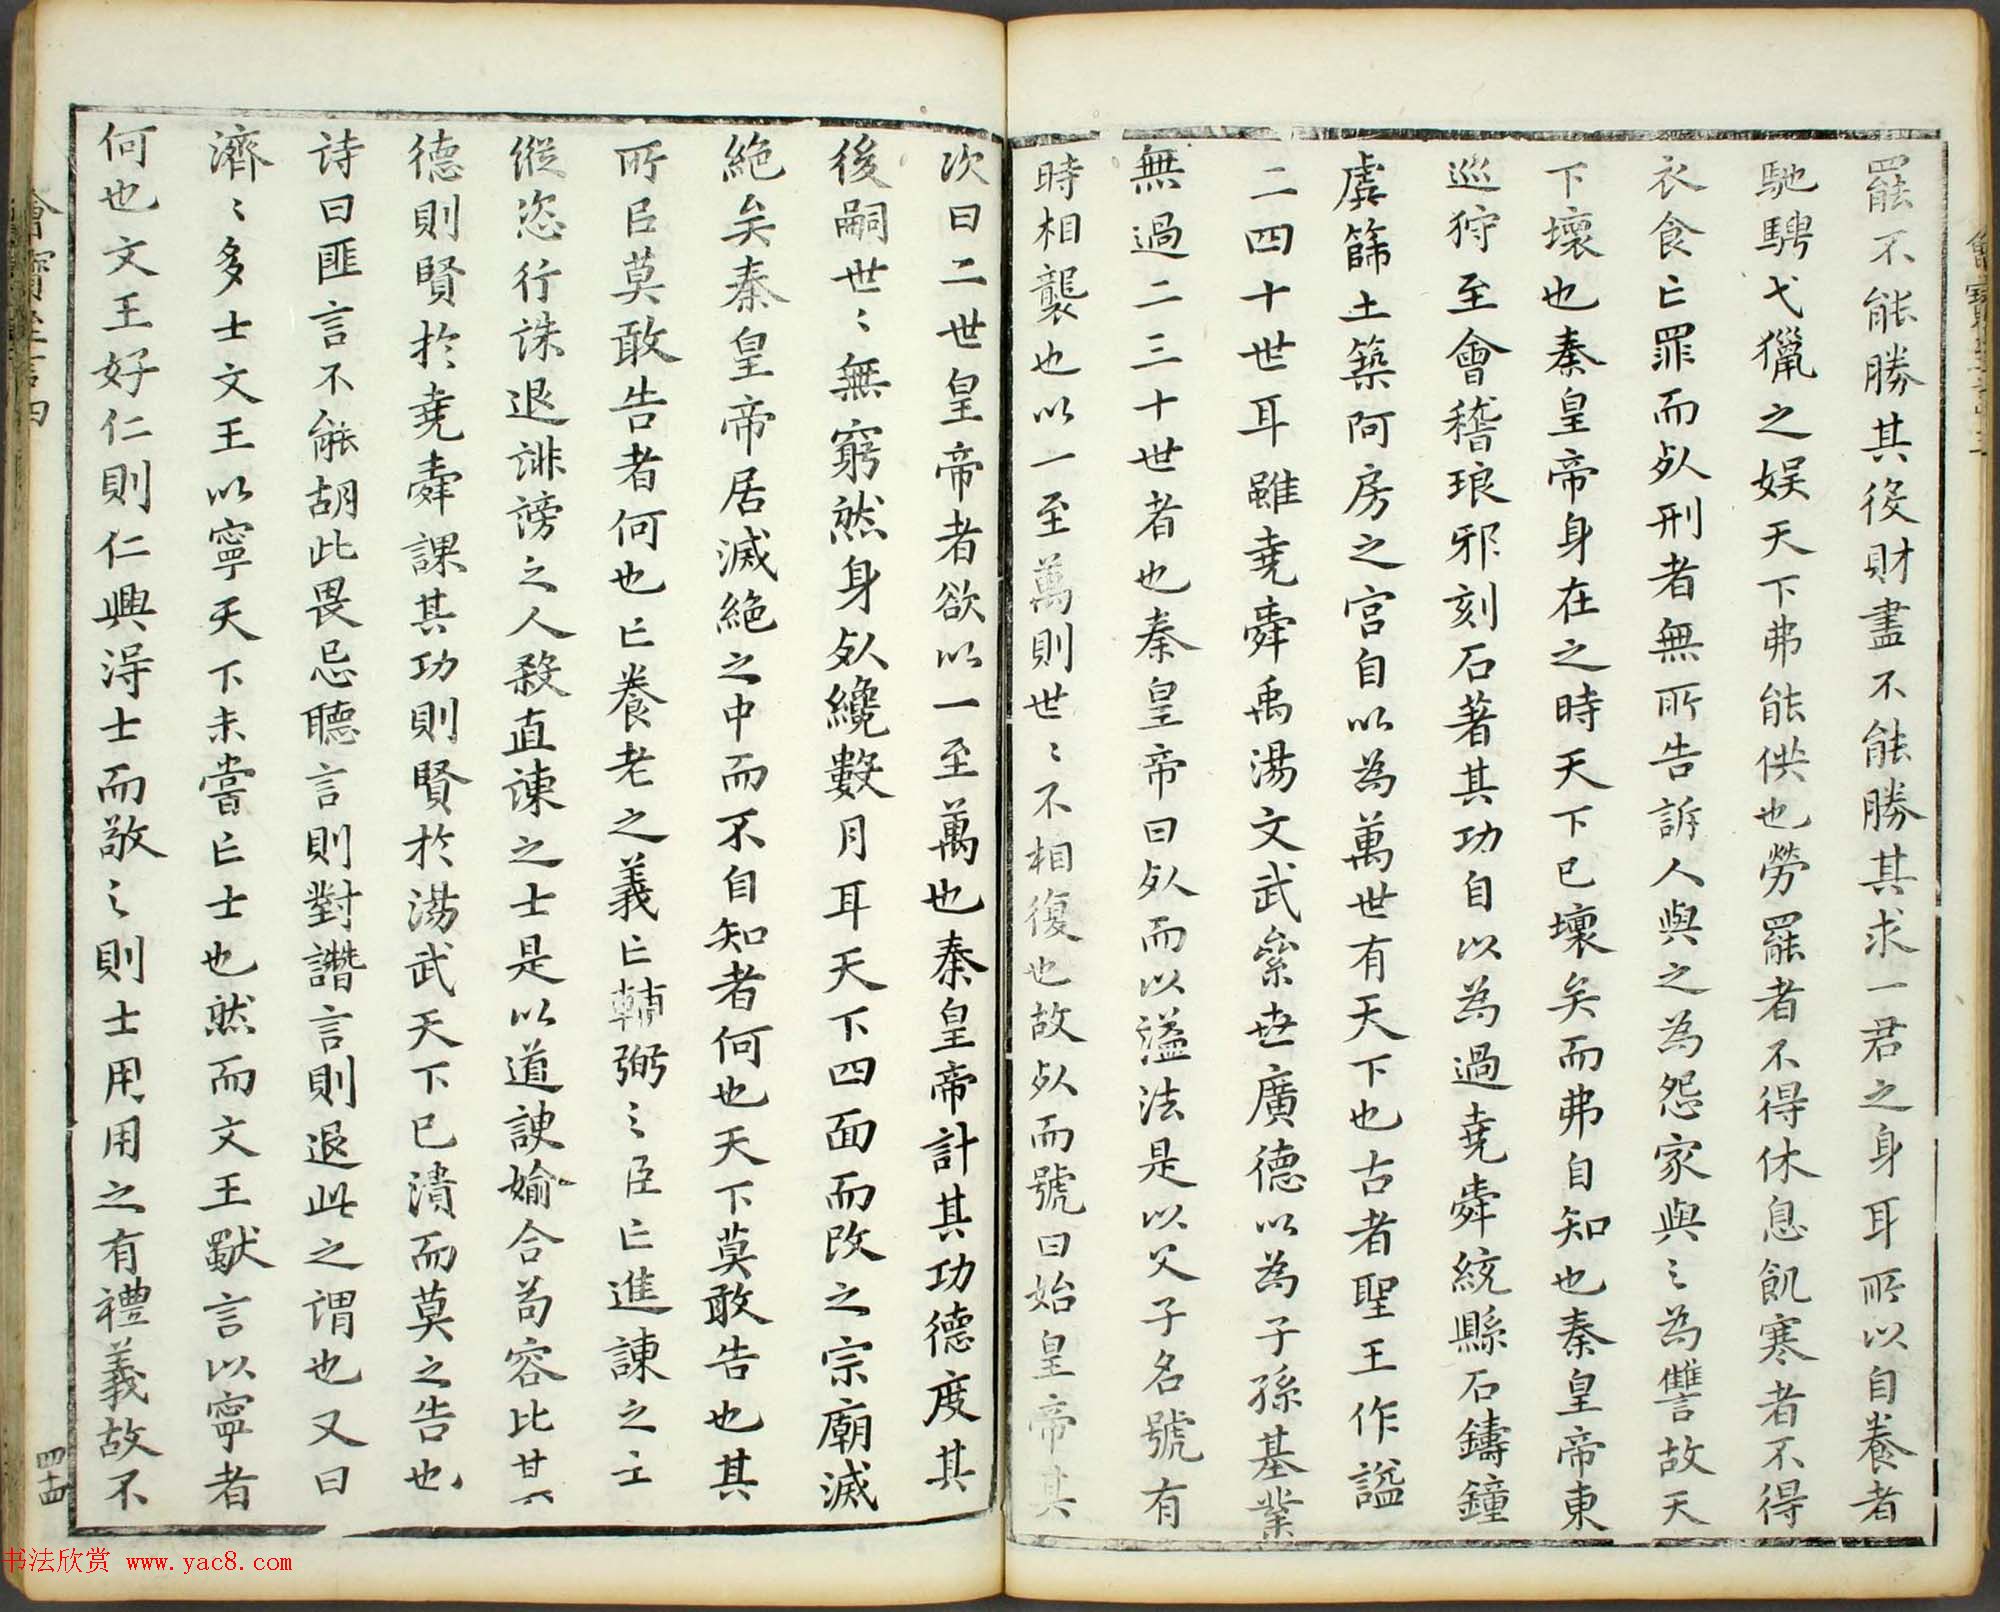 罷不能勝其役財盡不能勝其求一君之身耳所以自養者
馳騁弋獵之娛天下弗能供也勞罷者不得休息飢寒者不得
衣食亡罪而死刑者無所告訴人與之為怨家與〻為讐故天
下壞也秦皇帝身在之時天下已壞矣而弗自知也秦皇帝東
巡狩至會稽琅邪刻石著其功自以為過堯舜統縣石鑄鐘
虡篩土築阿房之宮自以為萬世有天下也古者聖王作諡
二四十世耳雖堯舜禹湯文武絫世廣德以為子孫基業
無過二三十世者也秦皇帝曰死而以謚法是以父子名號有
時相襲也以一至萬則世〻不相復也故死而號曰始皇帝其
次曰二世皇帝者欲以一至萬也秦皇帝計其功德度其
後嗣世〻無窮然身死纔數月耳天下四面而攻之宗廟滅
絕矣秦皇帝居滅絕之中而不自知者何也天下莫敢告也其
所臣莫敢告者何也亡養老之義亡輔弼〻之臣亡進諫之士
縱恣行誅退誹謗之人殺直諫之士是以道諛媮合苟容比其
德則賢於堯舜課其功則賢於湯武天下已潰而莫之告也
詩曰匪言不能胡此畏忌聽言則對譖言則退此之謂也又曰
濟〻多士文王以寧天下未嘗亡士也然而文王獻言以寧者
何也文王好仁則仁興得士而敬〻則士用用之有禮義故不
四十四
书法欣赏 www.yac8.com